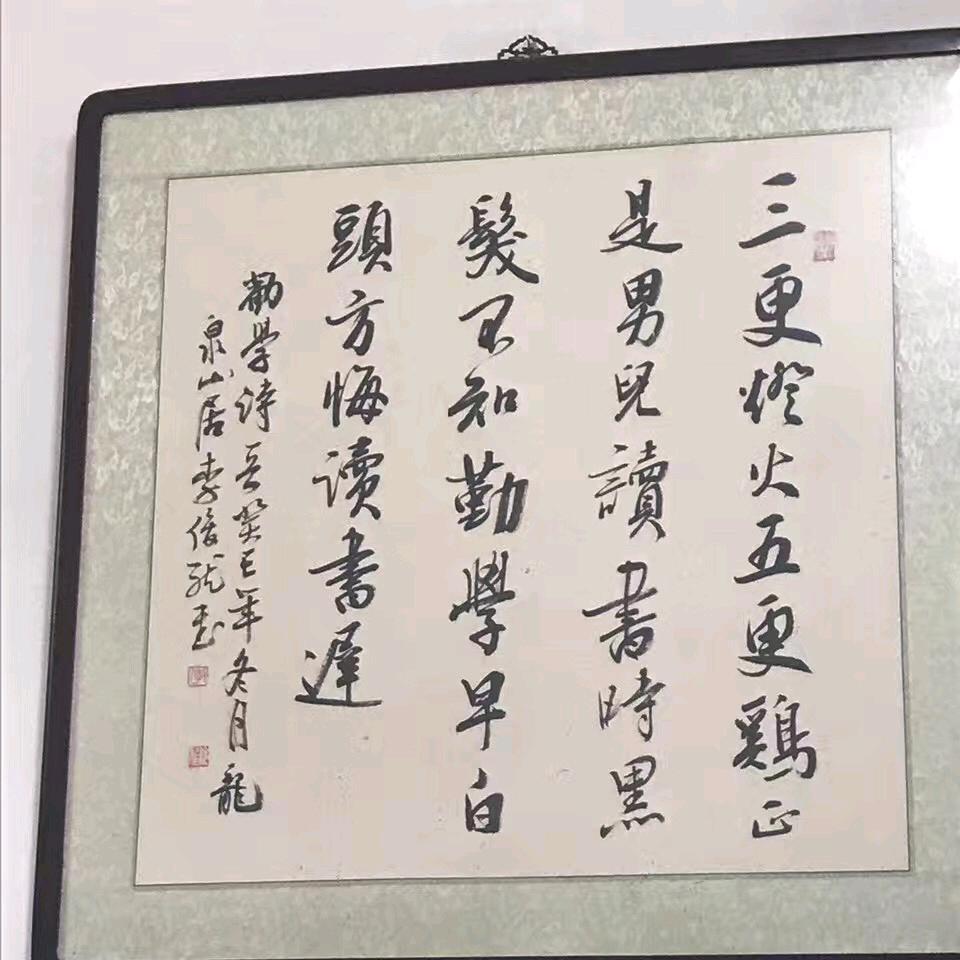 三更燈火五更鷄正
是男兒讀書時黑
髮不知勤學早白
頭方悔讀書遲
勸學詩 癸巳年冬月龍
泉山居李俊龍書